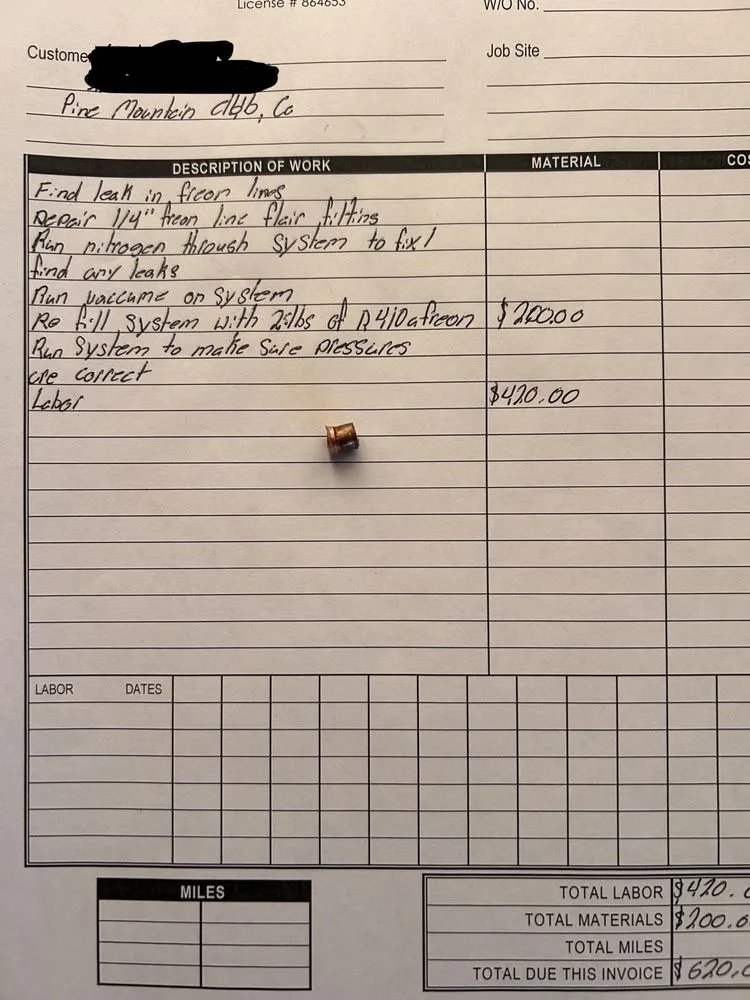 License # 864653
W/O No.
Customer
Job Site
Pine Mountain club, Ca
DESCRIPTION OF WORK MATERIAL COS
Find leak in freon lines
Repair 1/4" freon line flair fitting
Run nitrogen through system to fix/
find any leaks
Run vaccume on system
Re fill system with 25lbs of R410a freon $200.00
Run System to make sure pressures
are correct
Labor $420.00
LABOR DATES
MILES
TOTAL LABOR $420.0
TOTAL MATERIALS $200.0
TOTAL MILES
TOTAL DUE THIS INVOICE $620.0